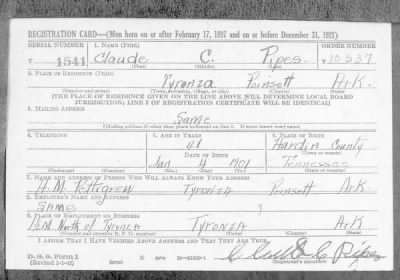 REGISTRATION CARD—(Men born on or after February 17, 1897 and on or before December 31, 1921)
SERIAL NUMBER 1. NAME (Print) ORDER NUMBER
T 1541 Claude C. Pipes T 10337
(First) (Middle) (Last)
2. PLACE OF RESIDENCE (Print)
Tyronza Poinsett Ark.
(Number and street) (Town, township, village, or city) (County) (State)
[THE PLACE OF RESIDENCE GIVEN ON THE LINE ABOVE WILL DETERMINE LOCAL BOARD
JURISDICTION; LINE 2 OF REGISTRATION CERTIFICATE WILL BE IDENTICAL]
3. MAILING ADDRESS
Same
(Mailing address if other than place indicated on line 2. If same insert word same)
4. TELEPHONE 5. AGE IN YEARS 6. PLACE OF BIRTH
41 Hardin County
DATE OF BIRTH (Town or county)
Jan 4 1901 Tennessee
(Exchange) (Number) (Mo.) (Day) (Yr.) (State or country)
7. NAME AND ADDRESS OF PERSON WHO WILL ALWAYS KNOW YOUR ADDRESS
H.M. Pettigrew Tyronza Poinsett Ark.
8. EMPLOYER'S NAME AND ADDRESS
Same
9. PLACE OF EMPLOYMENT OR BUSINESS
North of Tyronza Tyronza Ark
(Number and street or R. F. D. number) (Town) (County) (State)
I AFFIRM THAT I HAVE VERIFIED ABOVE ANSWERS AND THAT THEY ARE TRUE.
D. S. S. Form 1
(Revised 1-1-42) (over) Claude C Pipes
(Registrant's signature)